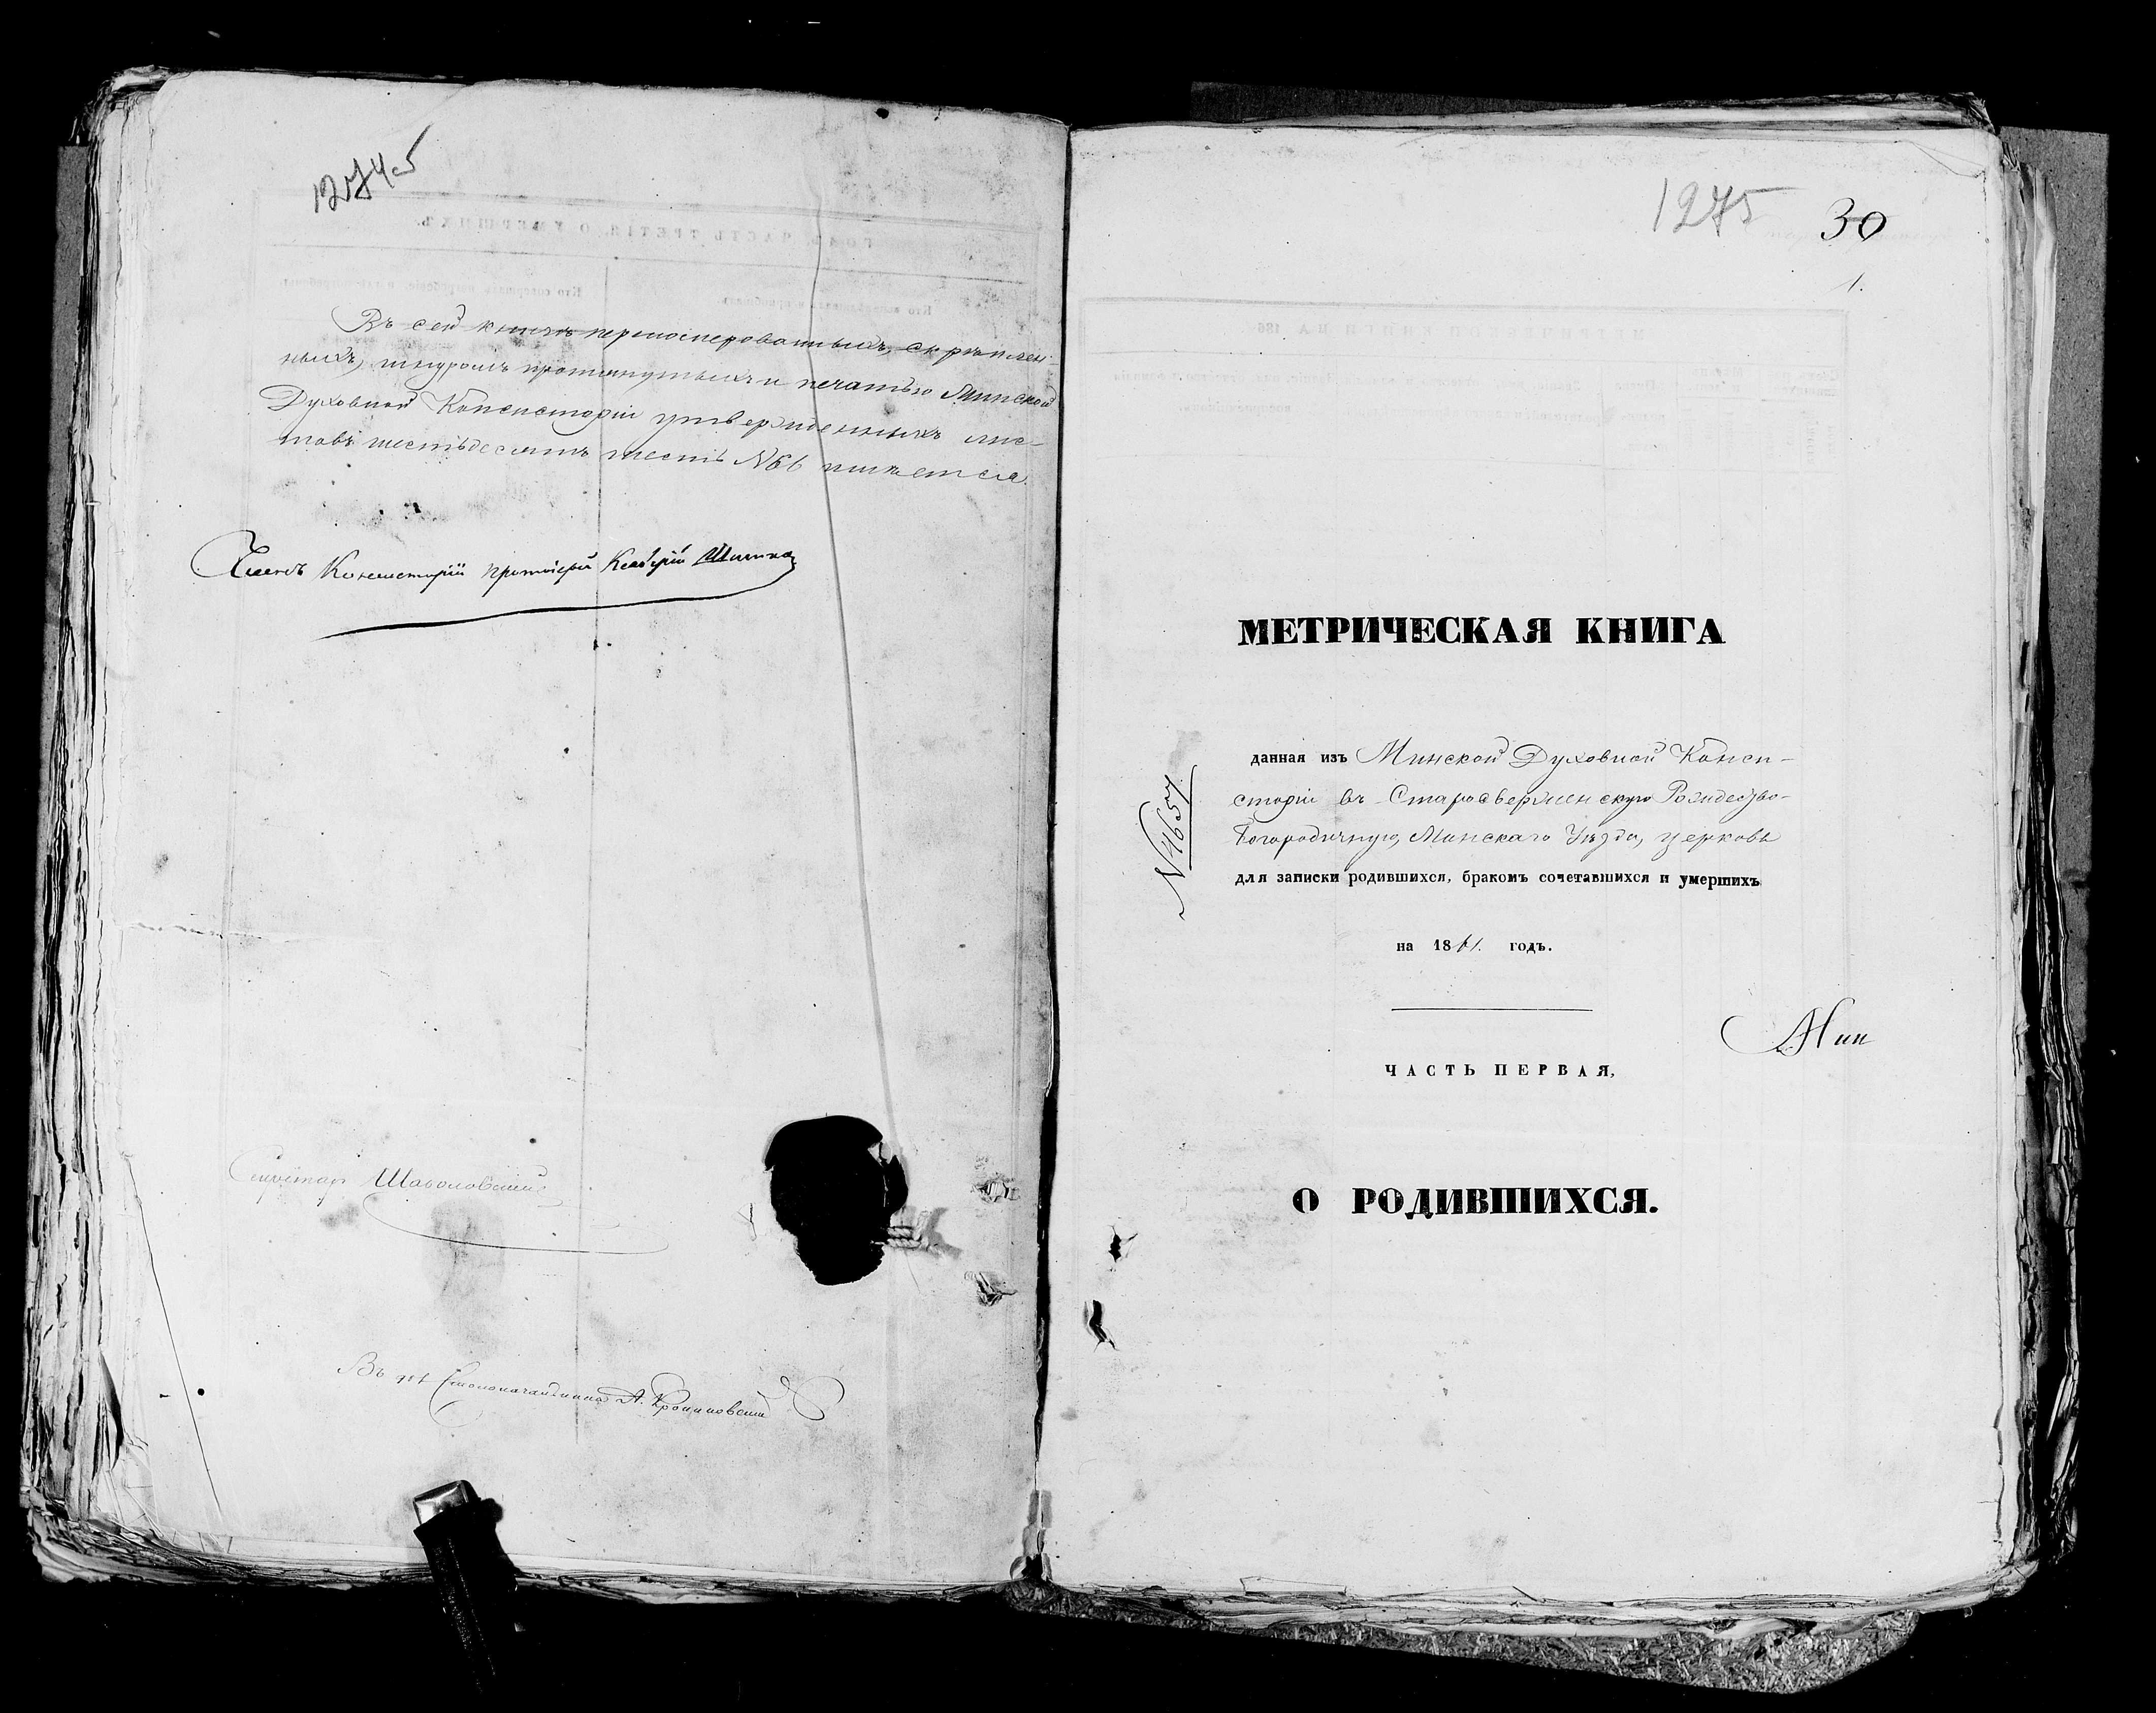 1274об
Въ сей книгѣ перенумерованныхъ, скрѣплен-
ныхъ, шнуромъ протянутыхъ и печатью Минской
Духовной Консисторіи утвержденныхъ лис-
товъ шестьдесятъ шесть №66 имѣется
Членъ Консисторіи протоіерей
Секретарь
Столоначальника А.
1275 30
1.
МЕТРИЧЕСКАЯ КНИГА
данная изъ Минской Духовной Конси-
сторіи въ Старосверженскую Рождество-
Богородичную, Минскаго Уѣзда, церковь
для записки родившихся, бракомъ сочетавшихся и умершихъ
№4657
на 1861. годъ.
ЧАСТЬ ПЕРВАЯ,
О РОДИВШИХСЯ.